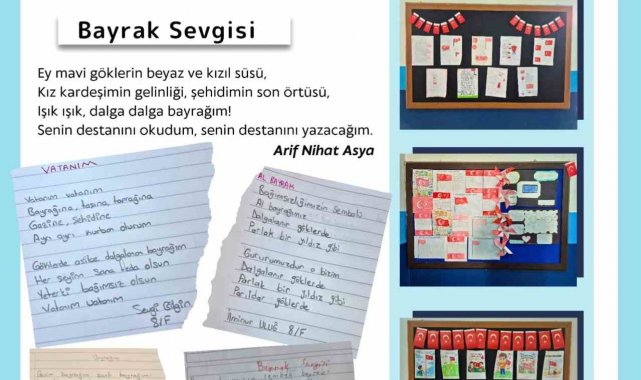 Bayrak Sevgisi
Ey mavi göklerin beyaz ve kızıl süsü,
Kız kardeşimin gelinliği, şehidimin son örtüsü,
Işık ışık, dalga dalga bayrağım!
Senin destanını okudum, senin destanını yazacağım.
Arif Nihat Asya
VATANIM
Vatanım vatanım
Bayrağına, taşına, toprağına
Gazine, şehidine
Ayrı ayrı kurban olurum
Göklerde asilce dalgalanan bayrağım
Her şeyim sana feda olsun
Yeterki bağımsız olsun
Vatanım vatanım
Sevgi Bilgin
8/F
AL BAYRAK
Bağımsızlığımızın sembolü
Al bayrağımız
Dalgalanır göklerde
Parlak bir yıldız gibi
Gururumuzdur o bizim
Dalgalanır göklerde
Parlak bir yıldız gibi
Parıldar göklerde
ULUĞ 8/F
Bayrak Sevgisi